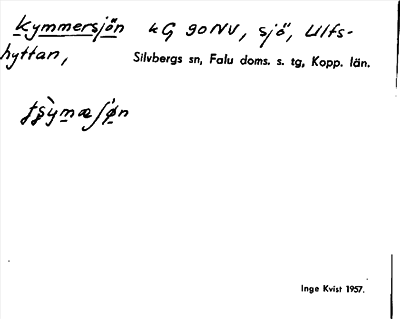 Kymmersjön kG 90 NV, sjö, Ulfs-
hyttan, Silvbergs sn, Falu doms. s. tg, Kopp. län.
Inge Kvist 1957.